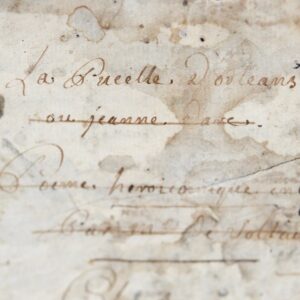 La Pucelle. D'orleans
ou jeanne Darc.
Poeme heroicomique en
Par Mr De Voltai